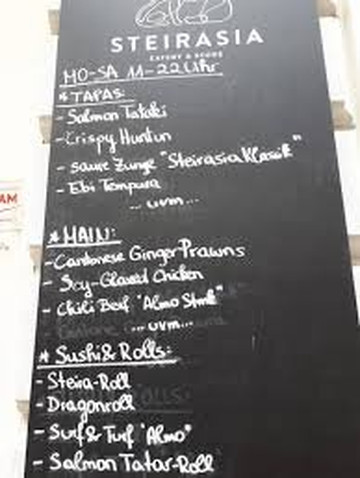 STEIRASIA
EATERY & STORE
MO-SA 11-22 Uhr
* TAPAS:
- Salmon Tataki
- Crispy Huntun
- saure Zunge "Steirasia Klassik"
- Ebi Tempura
... uvm...
* MAIN:
- Cantonese Ginger Prawns
- Soy-Glazed Chicken
- Chili Beef "Almo
... uvm...
* Sushi & Rolls:
- Steira-Roll
- Dragonroll
- Surf & Turf "Almo"
- Salmon Tatar-Roll